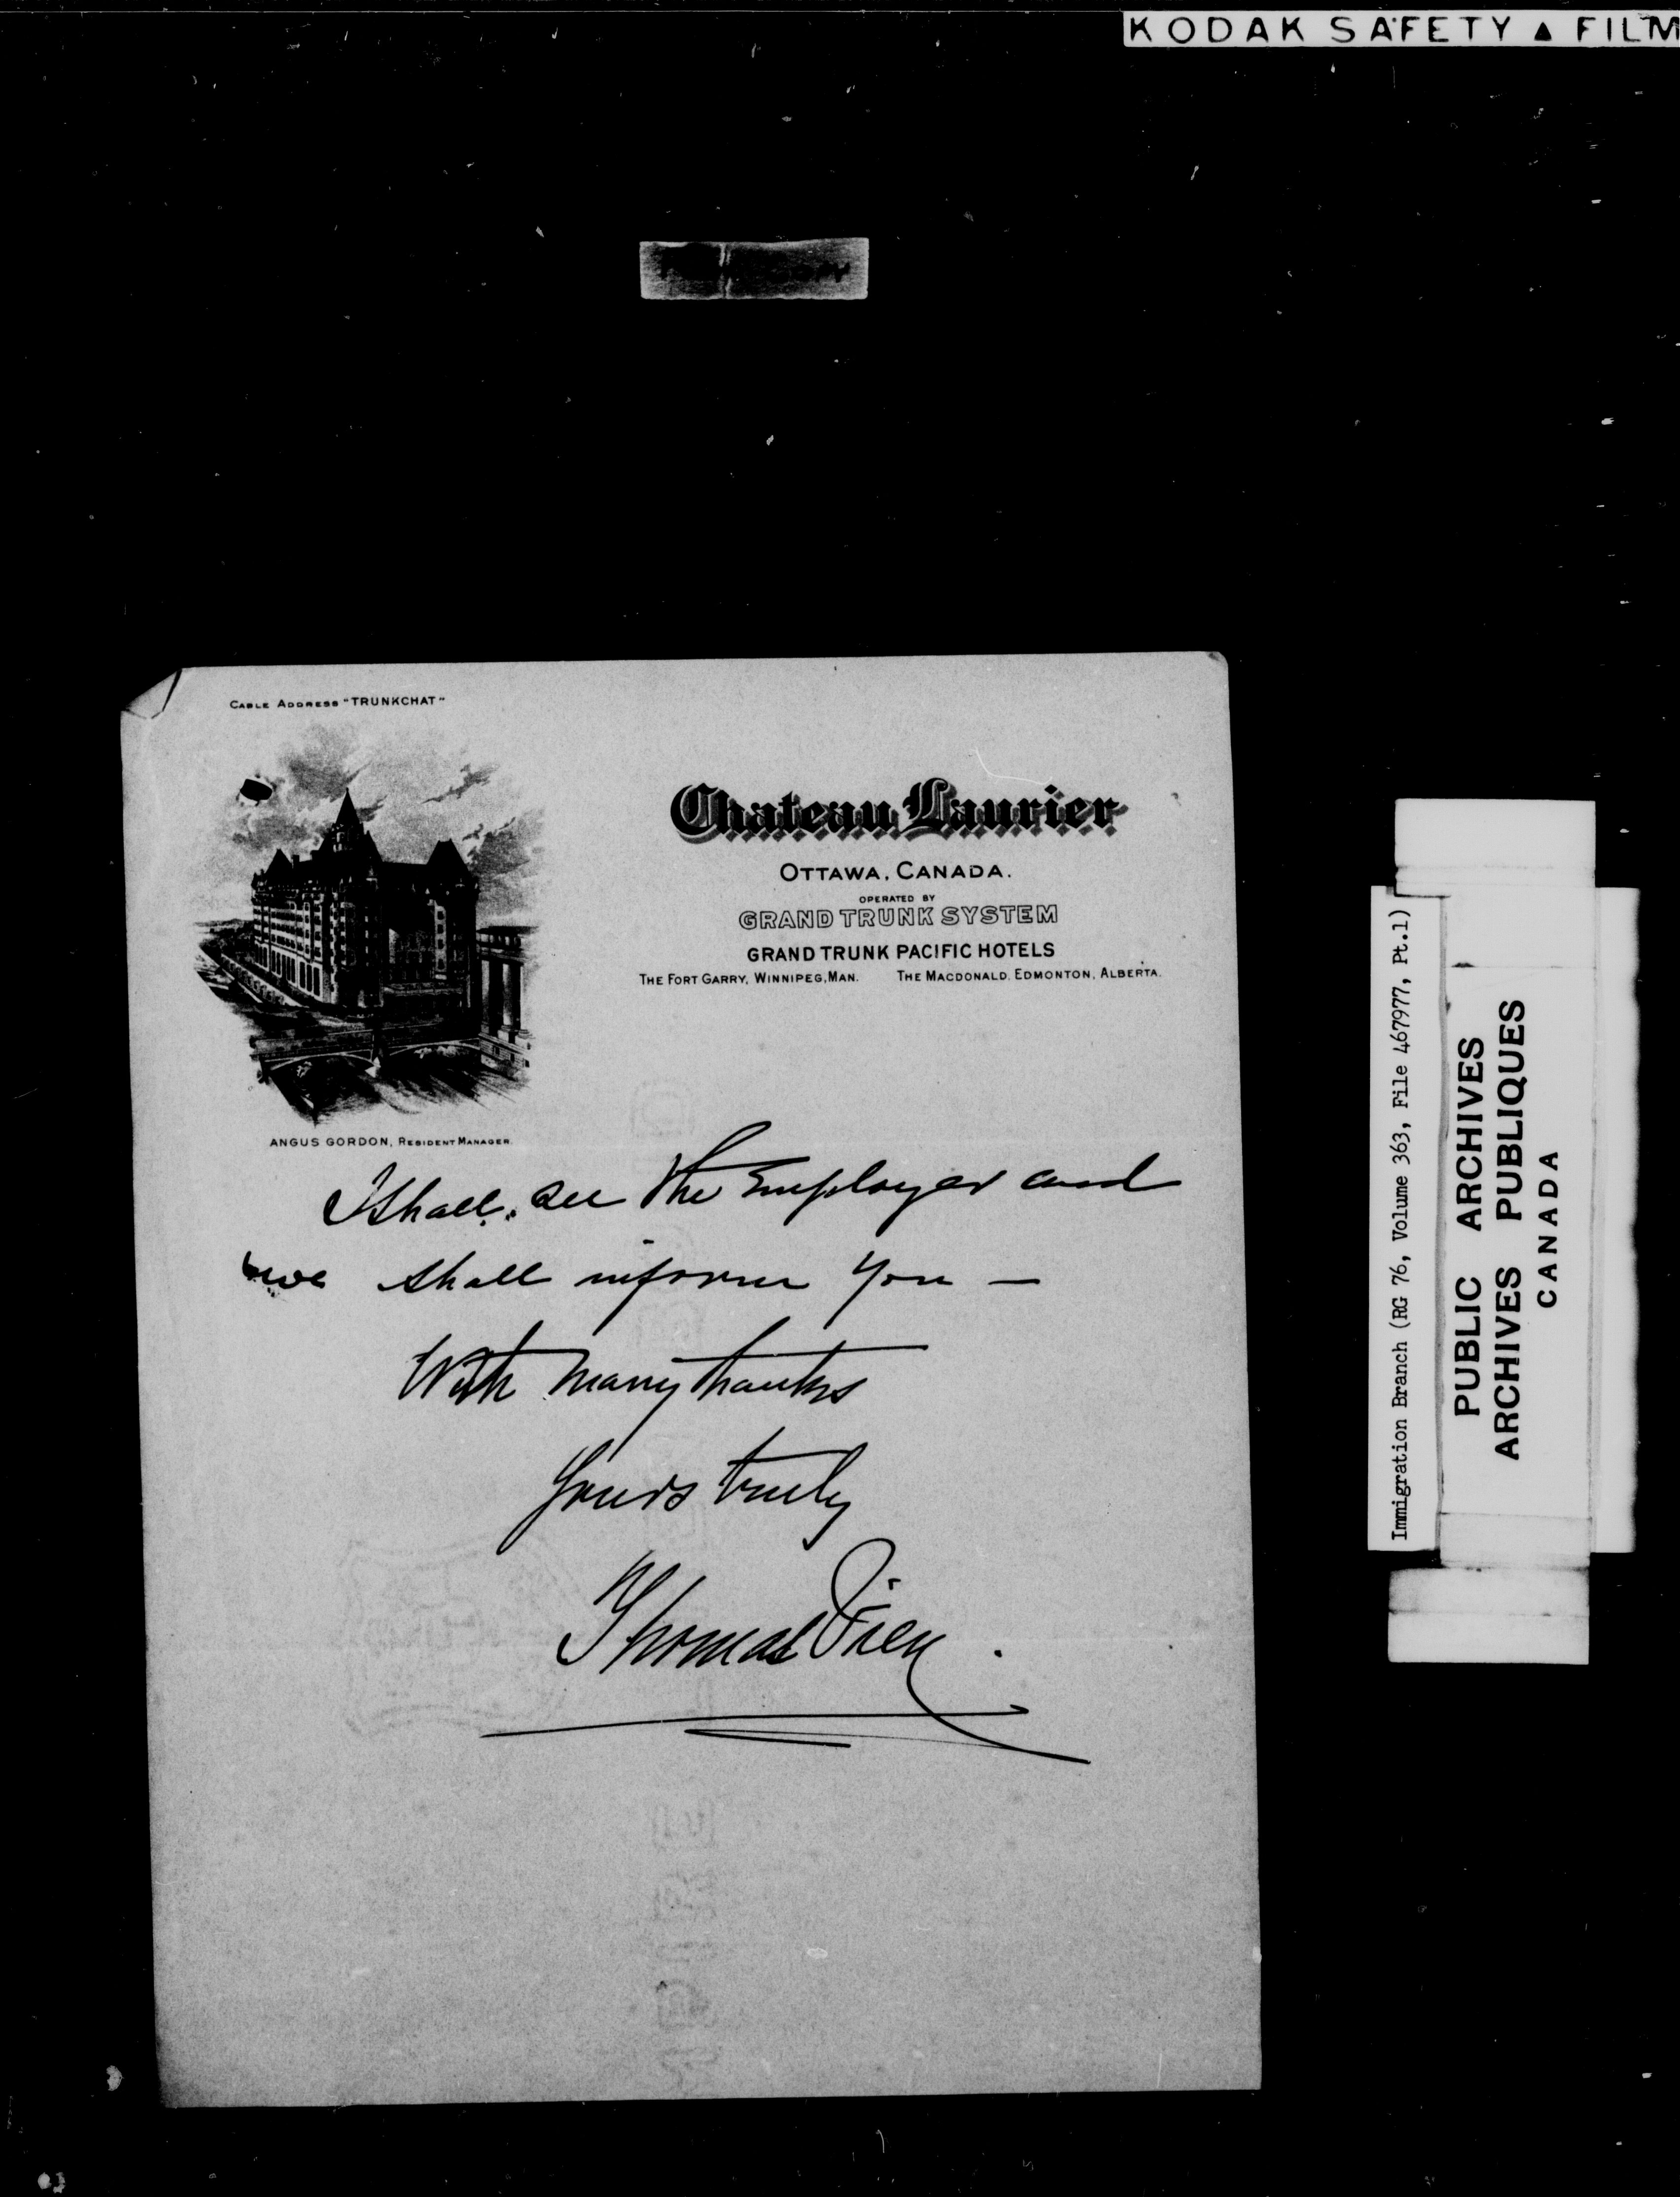 KODAK SAFETY ▲ FILM
COPY
CABLE ADDRESS "TRUNKCHAT"
Chateau Laurier
OTTAWA, CANADA.
OPERATED BY
GRAND TRUNK SYSTEM
GRAND TRUNK PACIFIC HOTELS
THE FORT GARRY, WINNIPEG, MAN. THE MACDONALD, EDMONTON, ALBERTA.
ANGUS GORDON, RESIDENT MANAGER.
I shall see the Employer and
we shall inform you —
With many thanks
Yours truly
Thomas Vien.
Immigration Branch (RG 76, Volume 363, File 467977, Pt.1)
PUBLIC ARCHIVES
ARCHIVES PUBLIQUES
CANADA